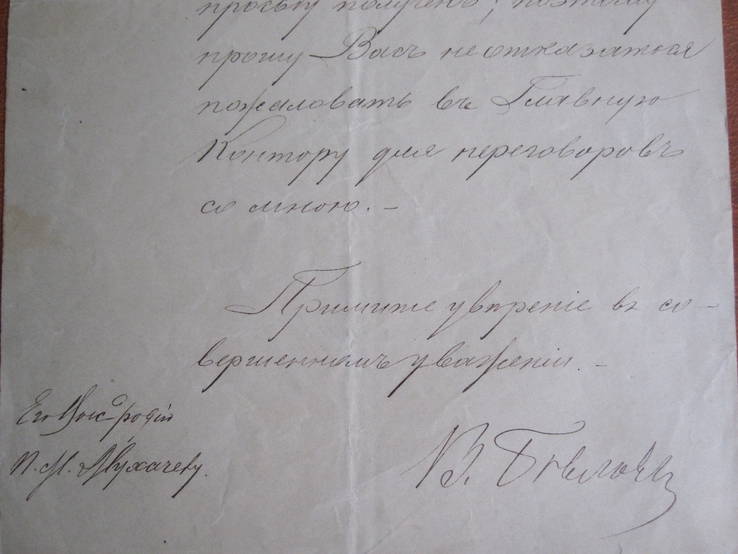 просьбу получены, поэтому
прошу Васъ не отказаться
пожаловать въ Главную
Контору для переговоровъ
со мною. —
Примите увѣреніе въ со-
вершенномъ уваженіи. —
Его Высбродiю
П. М.
В.